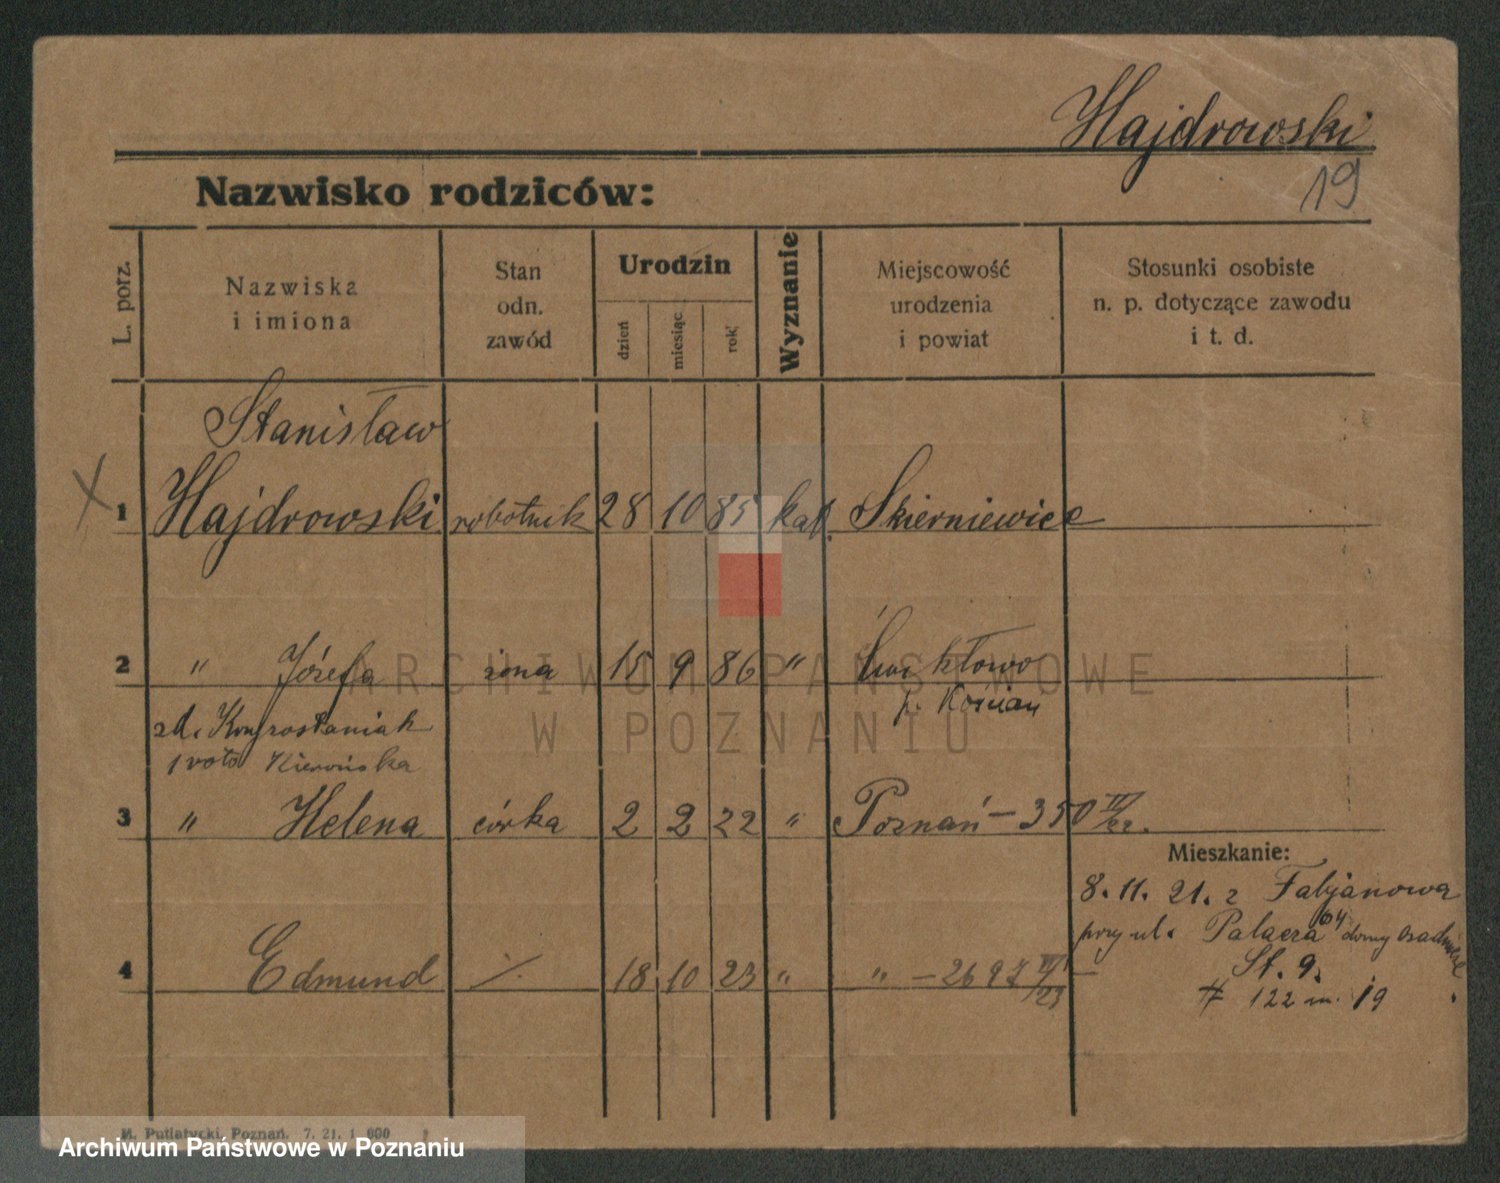 Hajdrowski
19
Nazwisko rodziców:
L. porz.
Nazwiska
i imiona
Stan
odn.
zawód
Urodzin
dzień
miesiąc
rok
Wyznanie
Miejscowość
urodzenia
i powiat
Stosunki osobiste
n. p. dotyczące zawodu
i t. d.
Stanisław
X 1 Hajdrowski robotnik 28 10 85 kat. Skierniewice
2 " Józefa żona 15 9 86 "
p. Kościan
zd.
1 voto
3 " Helena córka 2 2 22 " Poznań – 350 II/22.
Mieszkanie:
8. 11. 21. z Fabjanowa
przy ul. Palacza 64 domy
4 Edmund ./. 18 10 23 " " –
St. 9.
# 122 m. 19
ARCHIWUM PAŃSTWOWE
W POZNANIU
M. Putiatycki, Poznań. 7. 21. 1 000
Archiwum Państwowe w Poznaniu